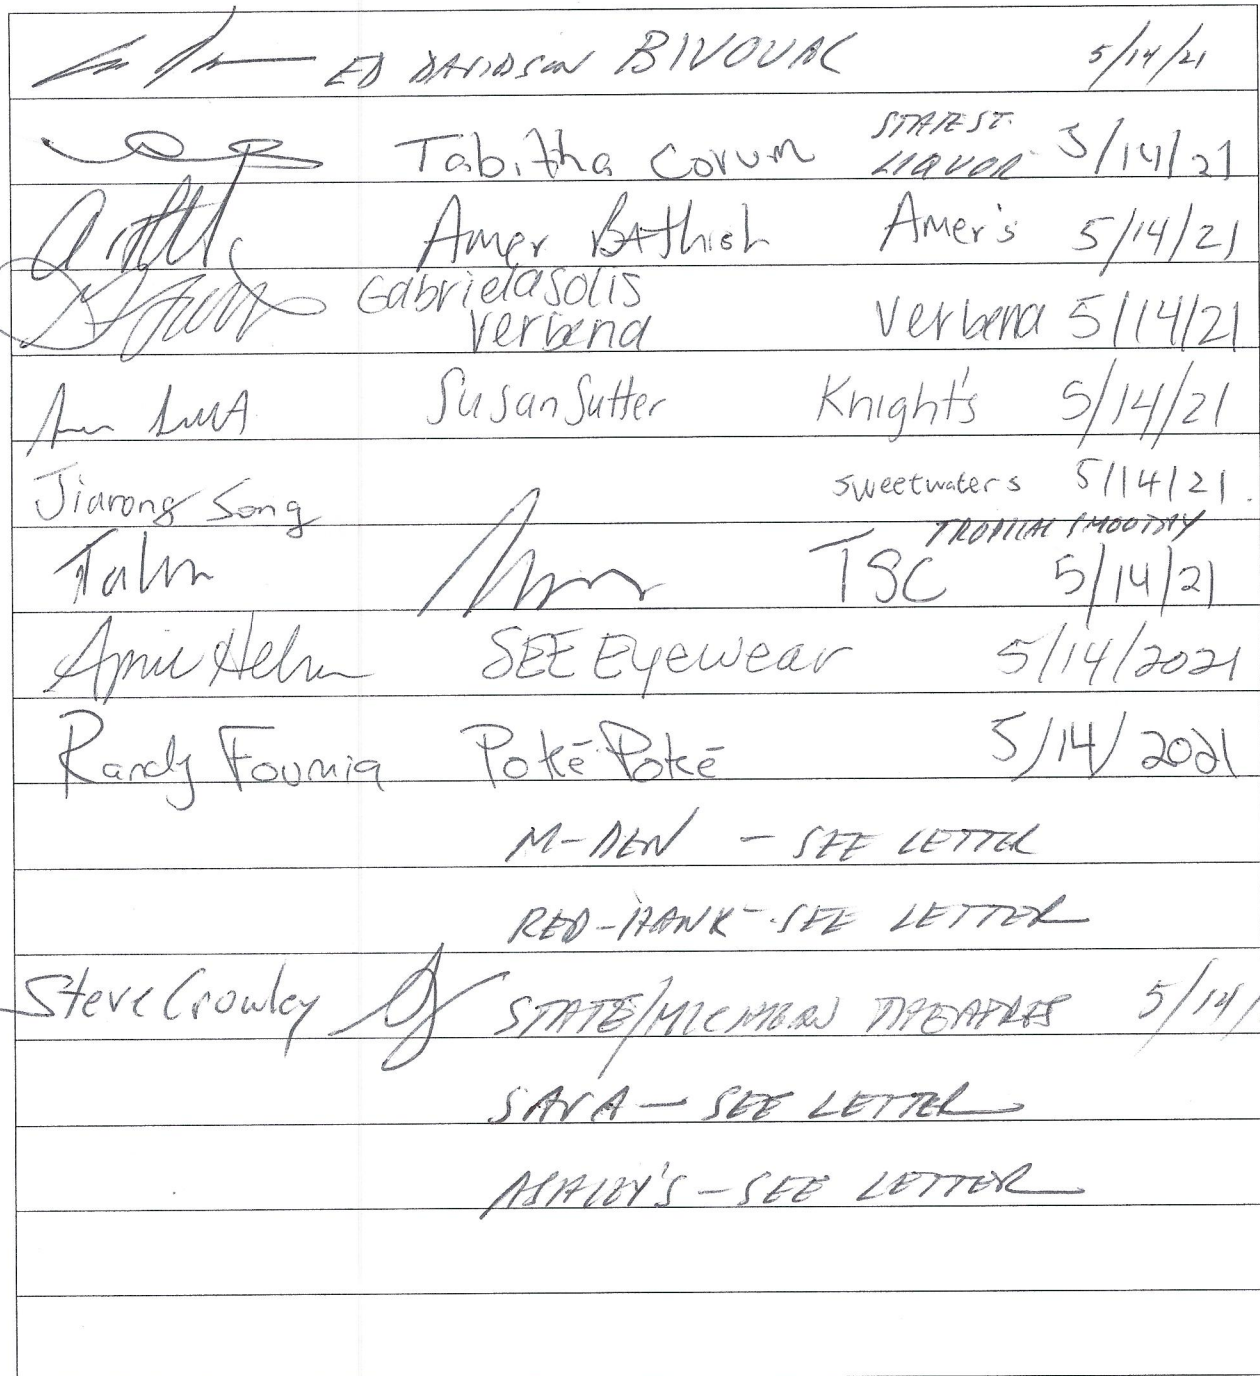 ED DAVIDSON BIVOUAC 5/14/21
Tabitha Corum STATE ST. LIQUOR 5/14/21
Amer Bathish Amer's 5/14/21
Gabriela Solis Verbena 5/14/21
verbena
Susan Sutter Knight's 5/14/21
Jiarong Song sweetwaters 5/14/21.
TROPICAL SMOOTHY
TSC 5/14/21
SEE Eyewear 5/14/2021
Randy Poké Poké 5/14/2021
M-DEN - SEE LETTER
RED-HAWK - SEE LETTER
Steve Crowley STATE/MICHIGAN THEATRES 5/14/
SAVA - SEE LETTER
ASHLEY'S - SEE LETTER